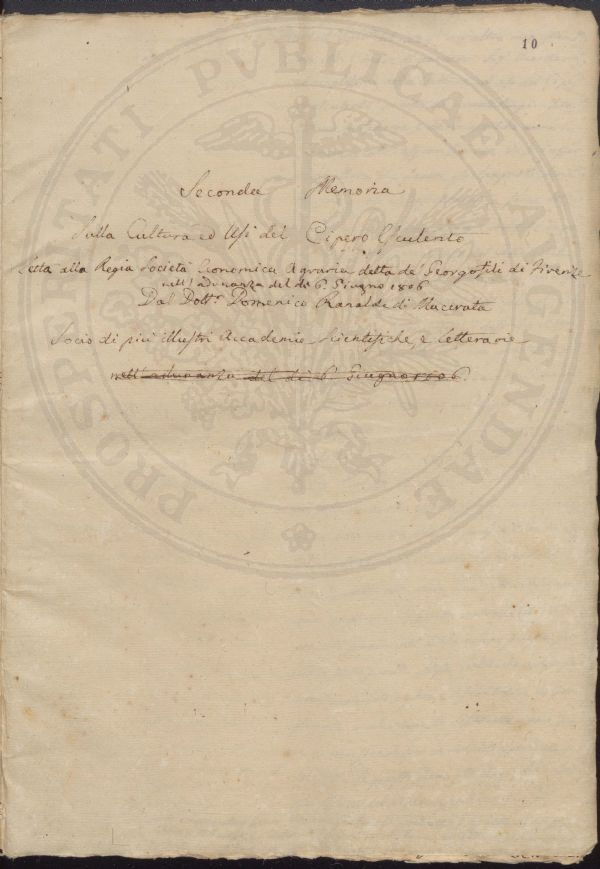 10
PROSPERITATI PVBLICAE AVGENDAE
Seconda Memoria
Sulla Cultura ed Usi del Cipero Esculento
Letta alla Regia Società Economica Agraria detta de' Georgofili di Firenze
nell'Adunanza del dì 6. Giugno 1806
Dal Dott.r Domenico Ranaldi di Macerata
Socio di più illustri Accademie scientifiche, e letterarie
nell'adunanza del dì 6. Giugno 1806.